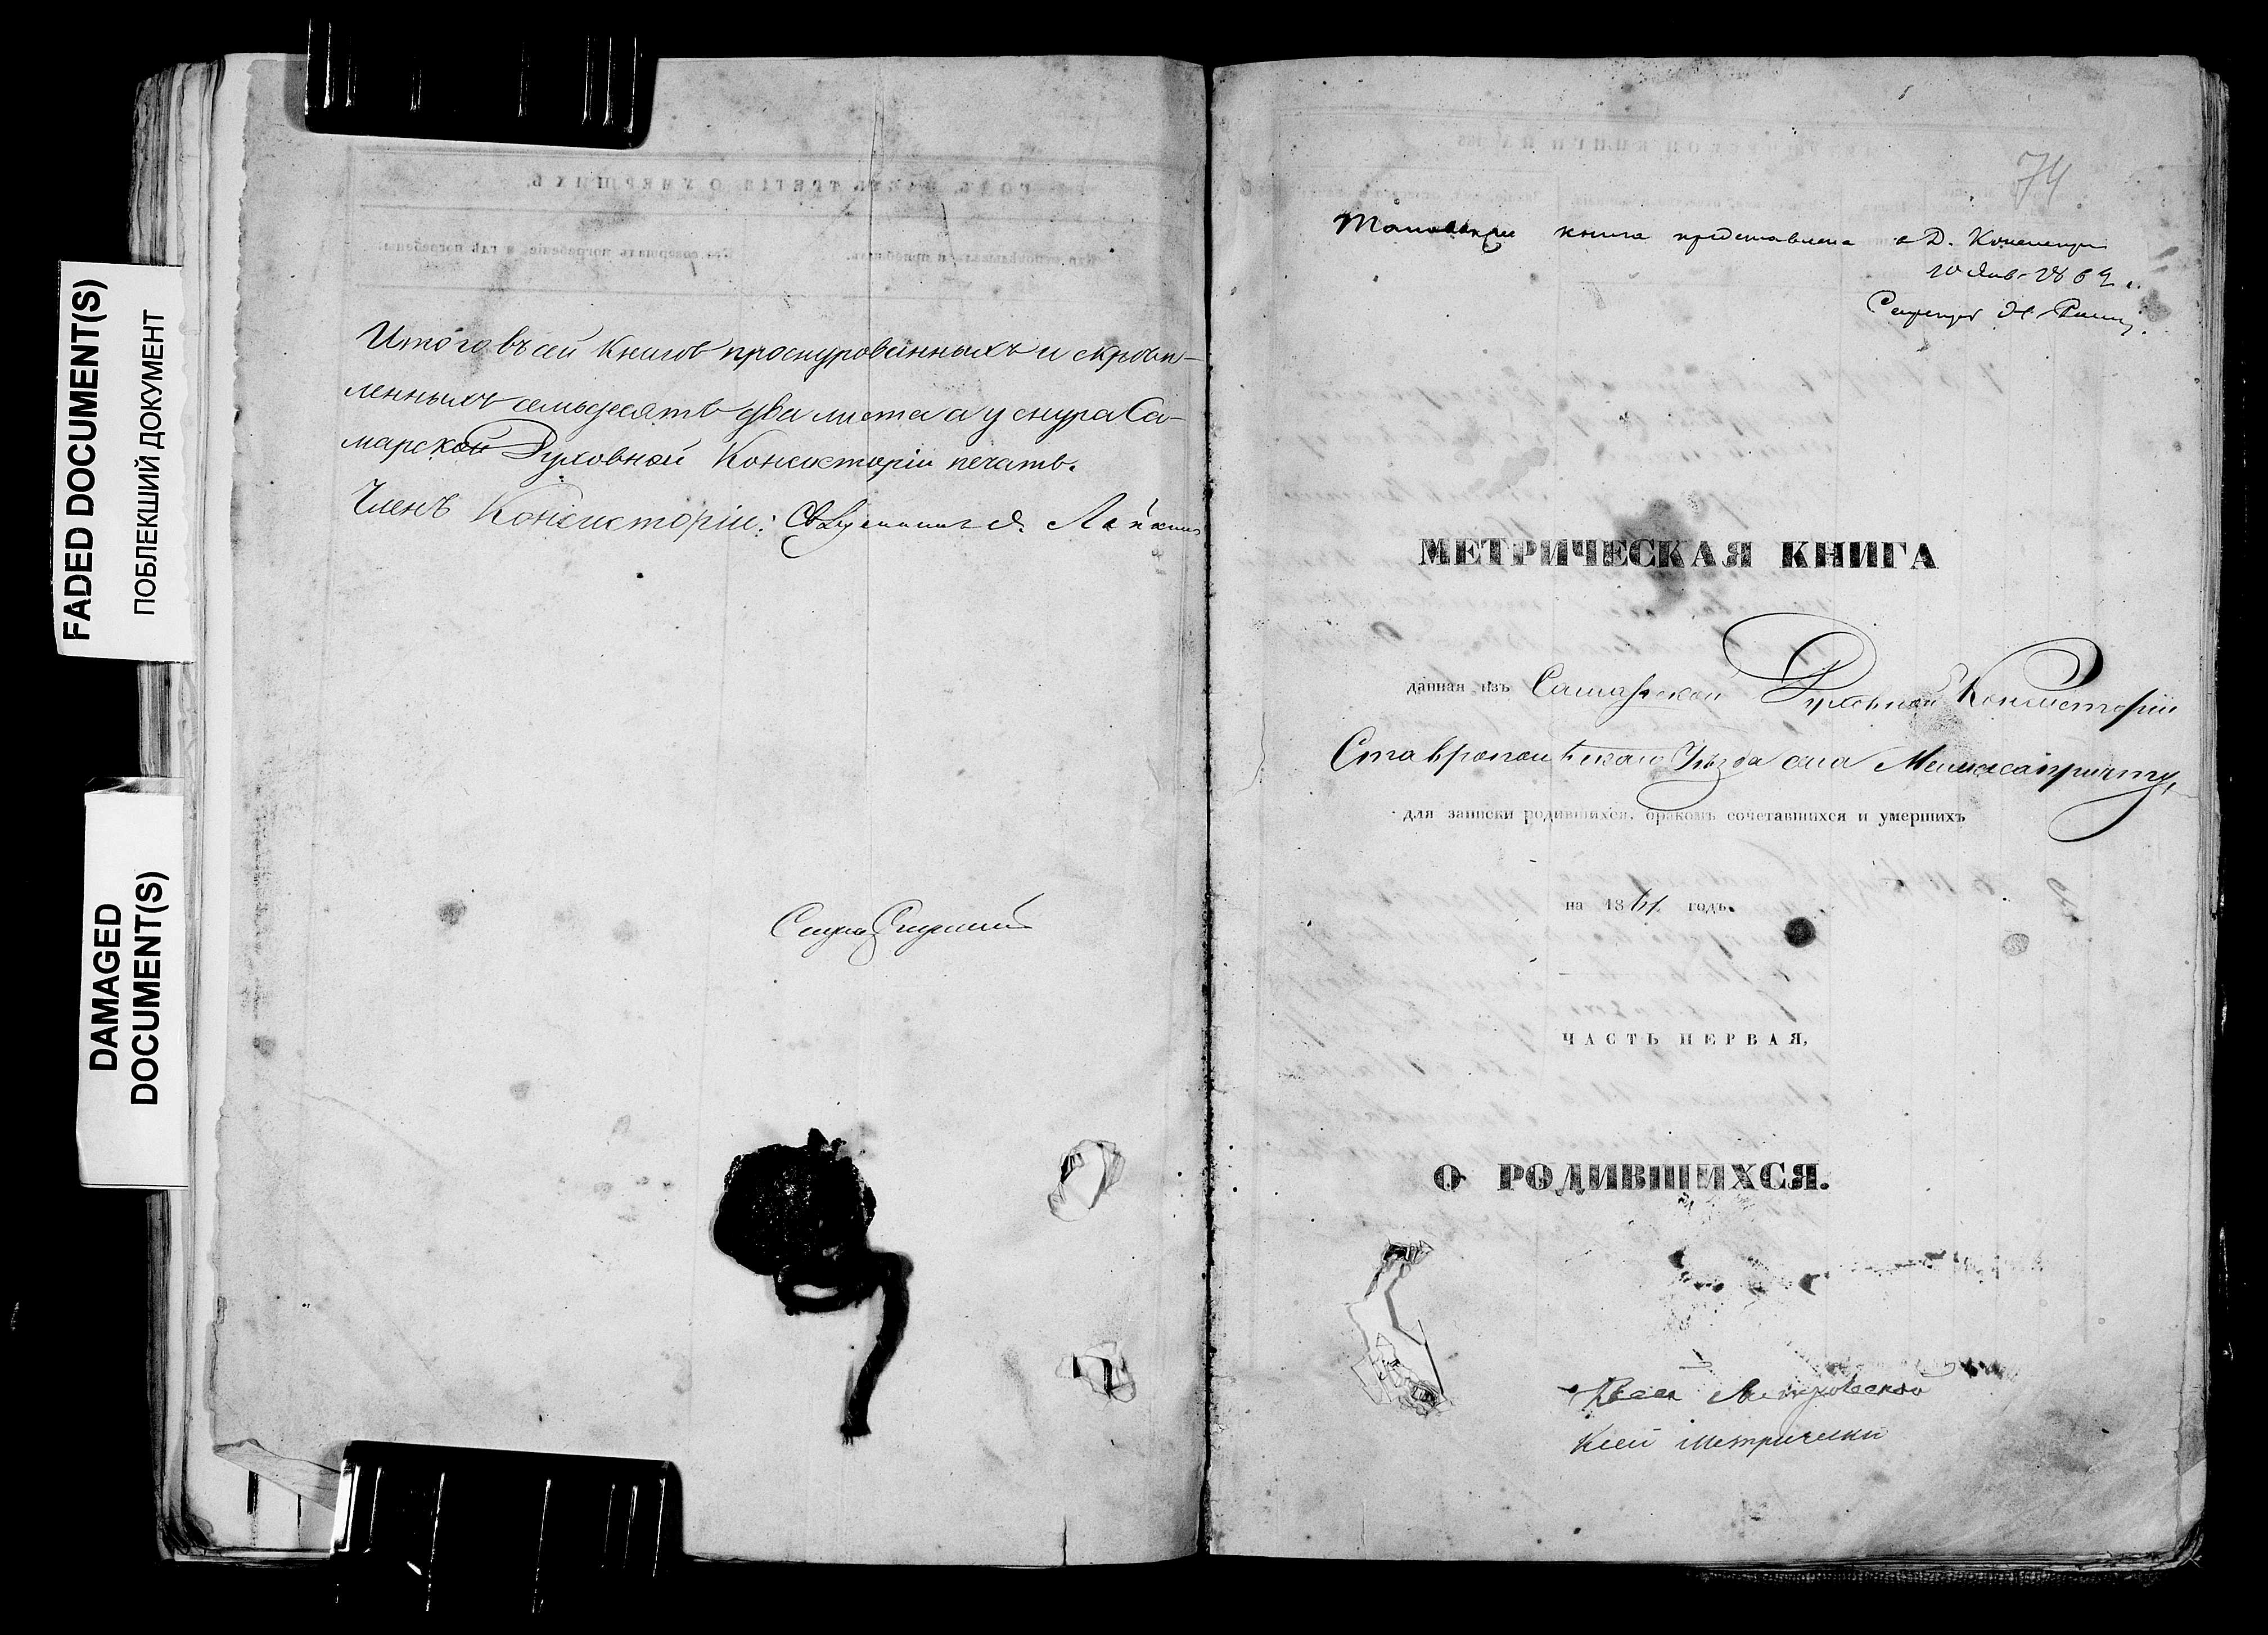 FADED DOCUMENT(S)
ПОБЛЕКШИЙ ДОКУМЕНТ
DAMAGED
DOCUMENT(S)
Итого въ сей книгѣ прошнурованныхъ и скрѣп-
ленныхъ семьдесятъ два листа а у снура Са-
марской Духовной Консисторіи печать.
Членъ Консисторіи: Священникъ
74
книга представлена в Д. Консисторію
10 Янв. 1862 г.
Секретарь
МЕТРИЧЕСКАЯ КНИГА
данная изъ Самарской Духовной Консисторіи
Ставропольскаго Уѣзда села причту,
для записки родившихся, бракомъ сочетавшихся и умершихъ
на 1861 годъ.
ЧАСТЬ ПЕРВАЯ,
О РОДИВШИХСЯ.